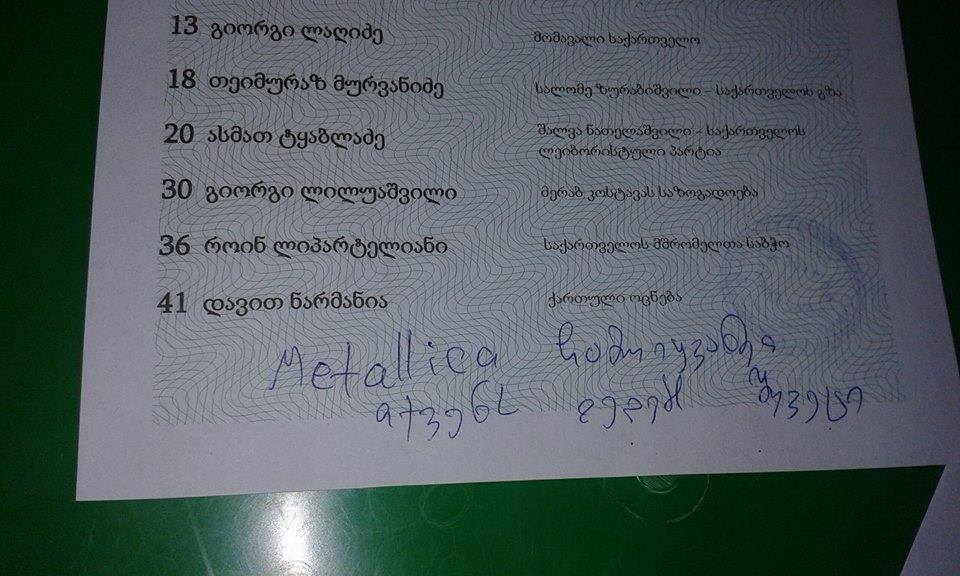 13 გიორგი ლაღიძე მომავალი საქართველო
18 თეიმურაზ მურვანიძე სალომე ზურაბიშვილი – საქართველოს გზა
20 ასმათ ტყაბლაძე შალვა ნათელაშვილი – საქართველოს
ლეიბორისტული პარტია
30 გიორგი ლილუაშვილი მერაბ კოსტავას საზოგადოება
36 როინ ლიპარტელიანი საქართველოს მშრომელთა საბჭო
41 დავით ნარმანია ქართული ოცნება
Metallica ჩამოიყვანეთ
თქვენს დედას შევეცი